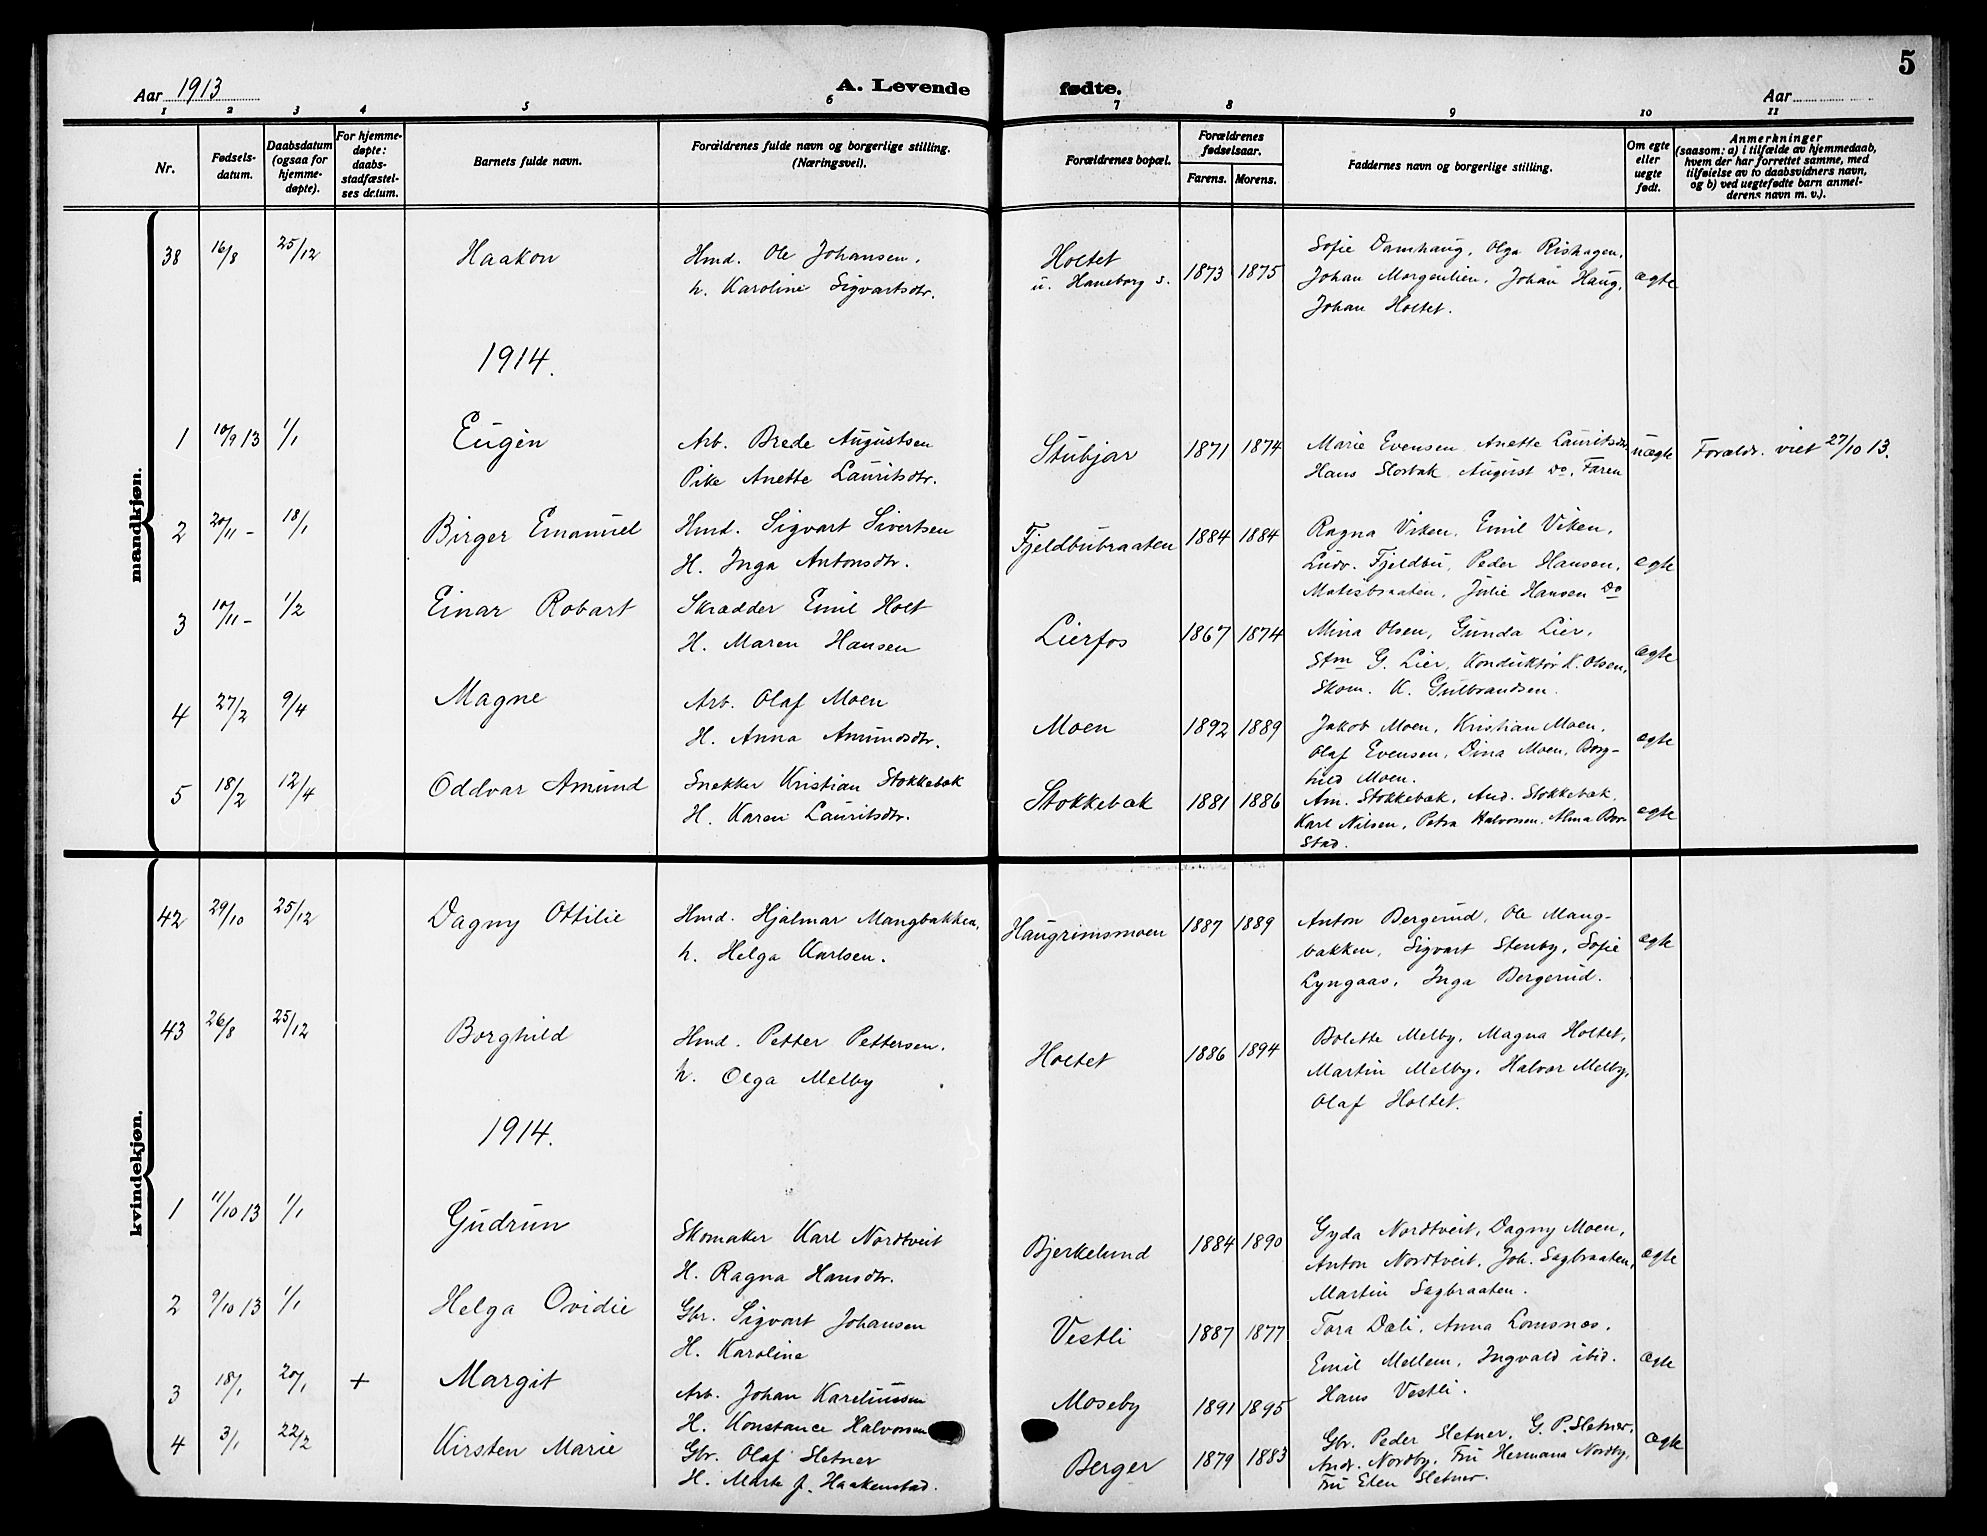 5
Aar 1913
A. Levende
fødte.
Aar
1 2 3 4 5 6 7 8 9 10 11
Nr.
Fødsels-
datum.
Daabsdatum
(ogsaa for
hjemme-
døpte).
For hjemme-
døpte:
daabs-
stadfæstel-
ses datum.
Barnets fulde navn.
Forældrenes fulde navn og borgerlige stilling.
(Næringsvei).
Forældrenes bopæl.
Forældrenes
fødselsaar.
Farens. Morens.
Faddernes navn og borgerlige stilling.
Om egte
eller
uegte
født.
Anmerkninger
(saasom: a) i tilfælde av hjemmedaab,
hvem der har forrettet samme, med
tilføielse av to daabsvidners navn,
og b) ved uegtefødte barn anmel-
derens navn m. v.).
mandkjøn.
38 16/8 25/12 Haakon
Hmd. Ole Johansen.
h. Karoline Sigvartsdtr.
Holtet
u. Haneborg s.
1873 1875
Sofie Damhaug, Olga Rishagen,
Johan Morgenlien, Johan Haug,
Johan Holtet.
ægte
1914.
1 10/9 13 1/1 Eugén
Arb. Brede Augustsen
Pike Anette Lauritsdtr.
Stubjar
1871 1874
Marie Evensen Anette Lauritsdtr
Hans Slorbak August do, Faren
uægte
Forældr. viet 27/10 13.
2 20/11 - 18/1 Birger Emanuel
Hmd. Sigvart Sivertsen
H. Inga Antonsdtr.
Fjeldbubraaten
1884 1884
Ragna Viken, Emil Viken,
Ludv. Fjeldbu, Peder Hansen,
Matisbraaten, Julie Hansen Do
egte
3 10/11 - 1/2 Einar Robart
Skrædder Emil Holt
H. Maren Hansen
Lierfos
1867 1874
Mina Olsen, Gunda Lier,
Stm G. Lier, Konduktør K. Olsen,
Skom. K. Gulbrandsen.
ægte
4 27/2 9/4 Magne
Arb. Olaf Moen
H. Anna Amundsdtr.
Moen
1892 1889
Jakob Moen, Kristian Moen,
Olaf Evensen, Dina Moen, Borg-
hild Moen.
egte
5 18/2 12/4 Oddvar Amund
Snekker Kristian Stokkebæk
H. Karen Lauritsdtr.
Stokkebæk
1881 1886
Am. Stokkebæk, And. Stokkebæk,
Karl Nilsen, Petra Halvorsen, Alma Bor-
stad.
egte
kvindekjøn.
42 29/10 25/12 Dagny Ottilie
Hmd. Hjalmar Mangbakken,
h. Helga Karlsen.
Haugrimsmoen
1887 1889
Anton Bergerud, Ole Mang-
bakken, Sigvart Stenby, Sofie
Lyngaas, Inga Bergerud.
egte
43 26/8 25/12 Borghild
Hmd. Petter Pettersen.
h. Olga Melby
Holtet
1886 1894
Bolette Melby, Magna Holtet,
Martin Melby, Halvor Melby,
Olaf Holtet.
1914.
1 11/10 13 1/1 Gudrun
Skomaker Karl Nordtveit
H. Ragna Hansdtr.
Bjerkelund
1884 1890
Gyda Nordtveit, Dagny Moen,
Anton Nordtveit, Joh. Sagbraaten,
Martin Sagbraaten.
ægte
2 9/10 13 1/1 Helga Ovidie
Gbr. Sigvart Johansen
H. Karoline
Vestli
1887 1877
Tora Dæli, Anna Lomsnes,
Emil Mellem, Ingvald ibid.
Hans Vestli.
ægte
3 18/1 20/1 + Margit
Arb. Johan Kareliussen
H. Konstance Halvorsen
Moseby
1891 1895
4 3/1 22/2 Kirsten Marie
Gbr. Olaf Sletner
H. Marte f. Haakenstad.
Berger
1879 1883
Gbr. Peder Sletner, G. P. Sletner,
Andr. Nordby, Fru Hermana Nordby,
Fru Elen Sletner.
ægte